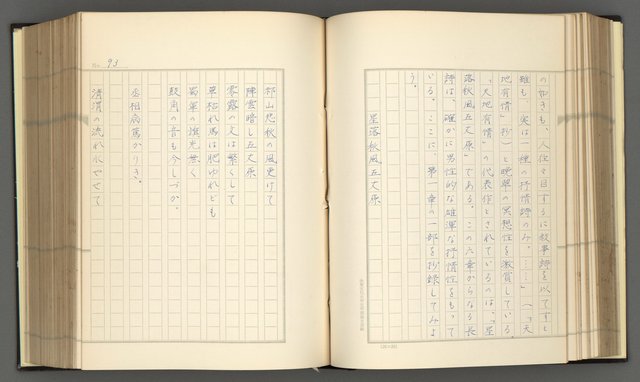 の如きも、人往々目するに叙事詩を以てすと
雖も、実は一種の抒情詩のみ。……」（「天
地有情」抄）と晩翠の冥想性を激賞している。
「天地有情」の代表作とされているのは、「星
落秋風五丈原」である。この六章からなる長
詩は、確かに男性的な雄渾な抒情性をもって
いる。ここに、第一章の一部を抄録してみよ
う。
星落秋風五丈原
No. 93
祁山悲秋の風更けて
陣雲暗し五丈原
零露の文は繁くして
草枯れ馬は肥ゆれども
蜀軍の旗光無く
鼓角の音も今しづか。
丞相病篤かりき。
清渭の流れ水やせて